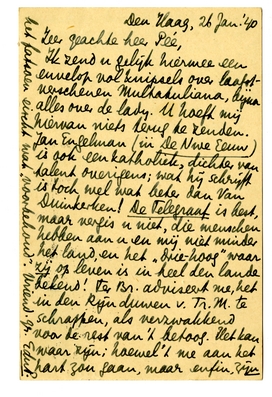 Den Haag, 26 Jan. '40
Zeer geachte heer Pée,
Ik zend u gelijk hiermee een
envelop vol knipsels over laatst-
verschenen Multatuliana, bijna
alles over de lady. U hoeft mij
hiervan niets terug te zenden.
Jan Engelman (in De Nwe Eeuw)
is ook een katholiek, dichter van
talent overigens; wat hij schrijft
is toch wel wat beter dan Van
Duinkerken! De Telegraaf is best,
maar vergis u niet, die menschen
hebben aan u en mij niet minder
het land, en het „drie-hoog" waar
zij op leven is in heel den lande
bekend! Ty Br. adviseert me, het
in den Rijn duwen v. Tr. M. te
schrappen, als verzwakkend
voor de rest van 't betoog. Het kan
waar zijn; hoewel 't me aan het
hart zou gaan, maar enfin, zijn
het fatsoen eischt nu „voorbehoud".